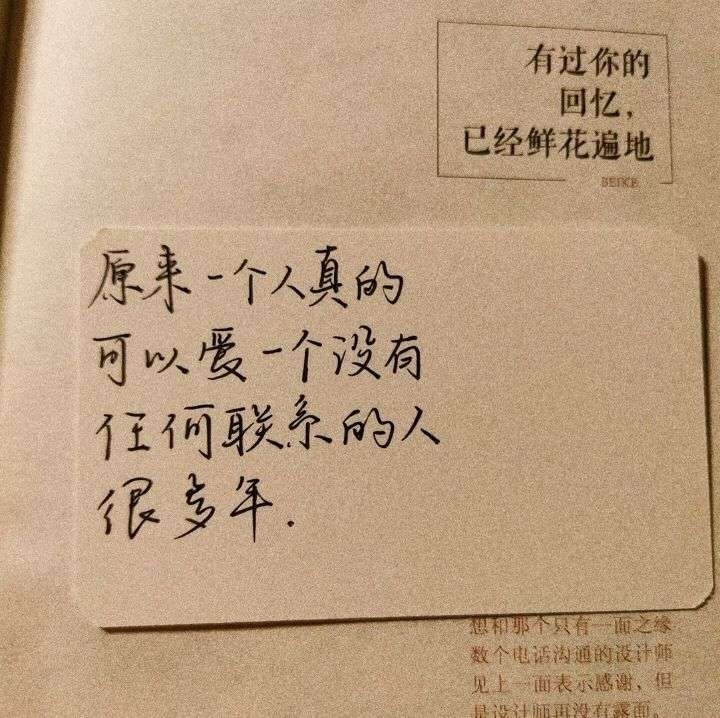 有过你的
回忆，
已经鲜花遍地
BEIKE
原来一个人真的
可以爱一个没有
任何联系的人
很多年.
想和那个只有一面之缘
数个电话沟通的设计师
见上一面表示感谢、但
是设计师再没有露面。